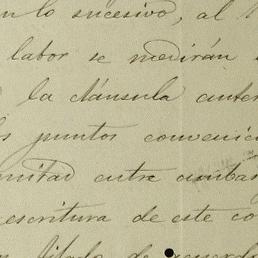 lo sucesivo, al
labor se medirán
la cláusula anter
puntos convenid
mitad entre ambas
escritura de este co
de